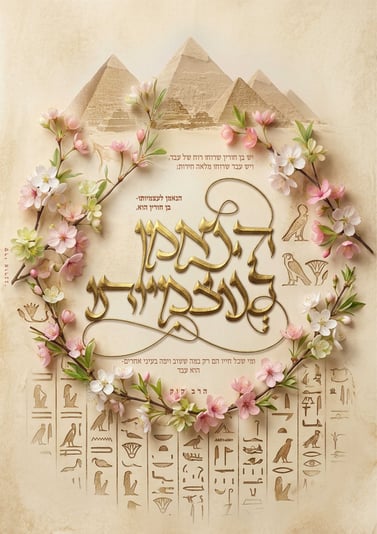 יש בן חורין שרוחו רוח של עבד,
ויש עבד שרוחו מלאה חירות;
הנאמן לעצמיותו-
בן חורין הוא,
הנאמן
לעצמיותו
ומי שכל חייו הם רק במה שטוב ויפה בעיני אחרים-
הוא עבד
הרב קוק